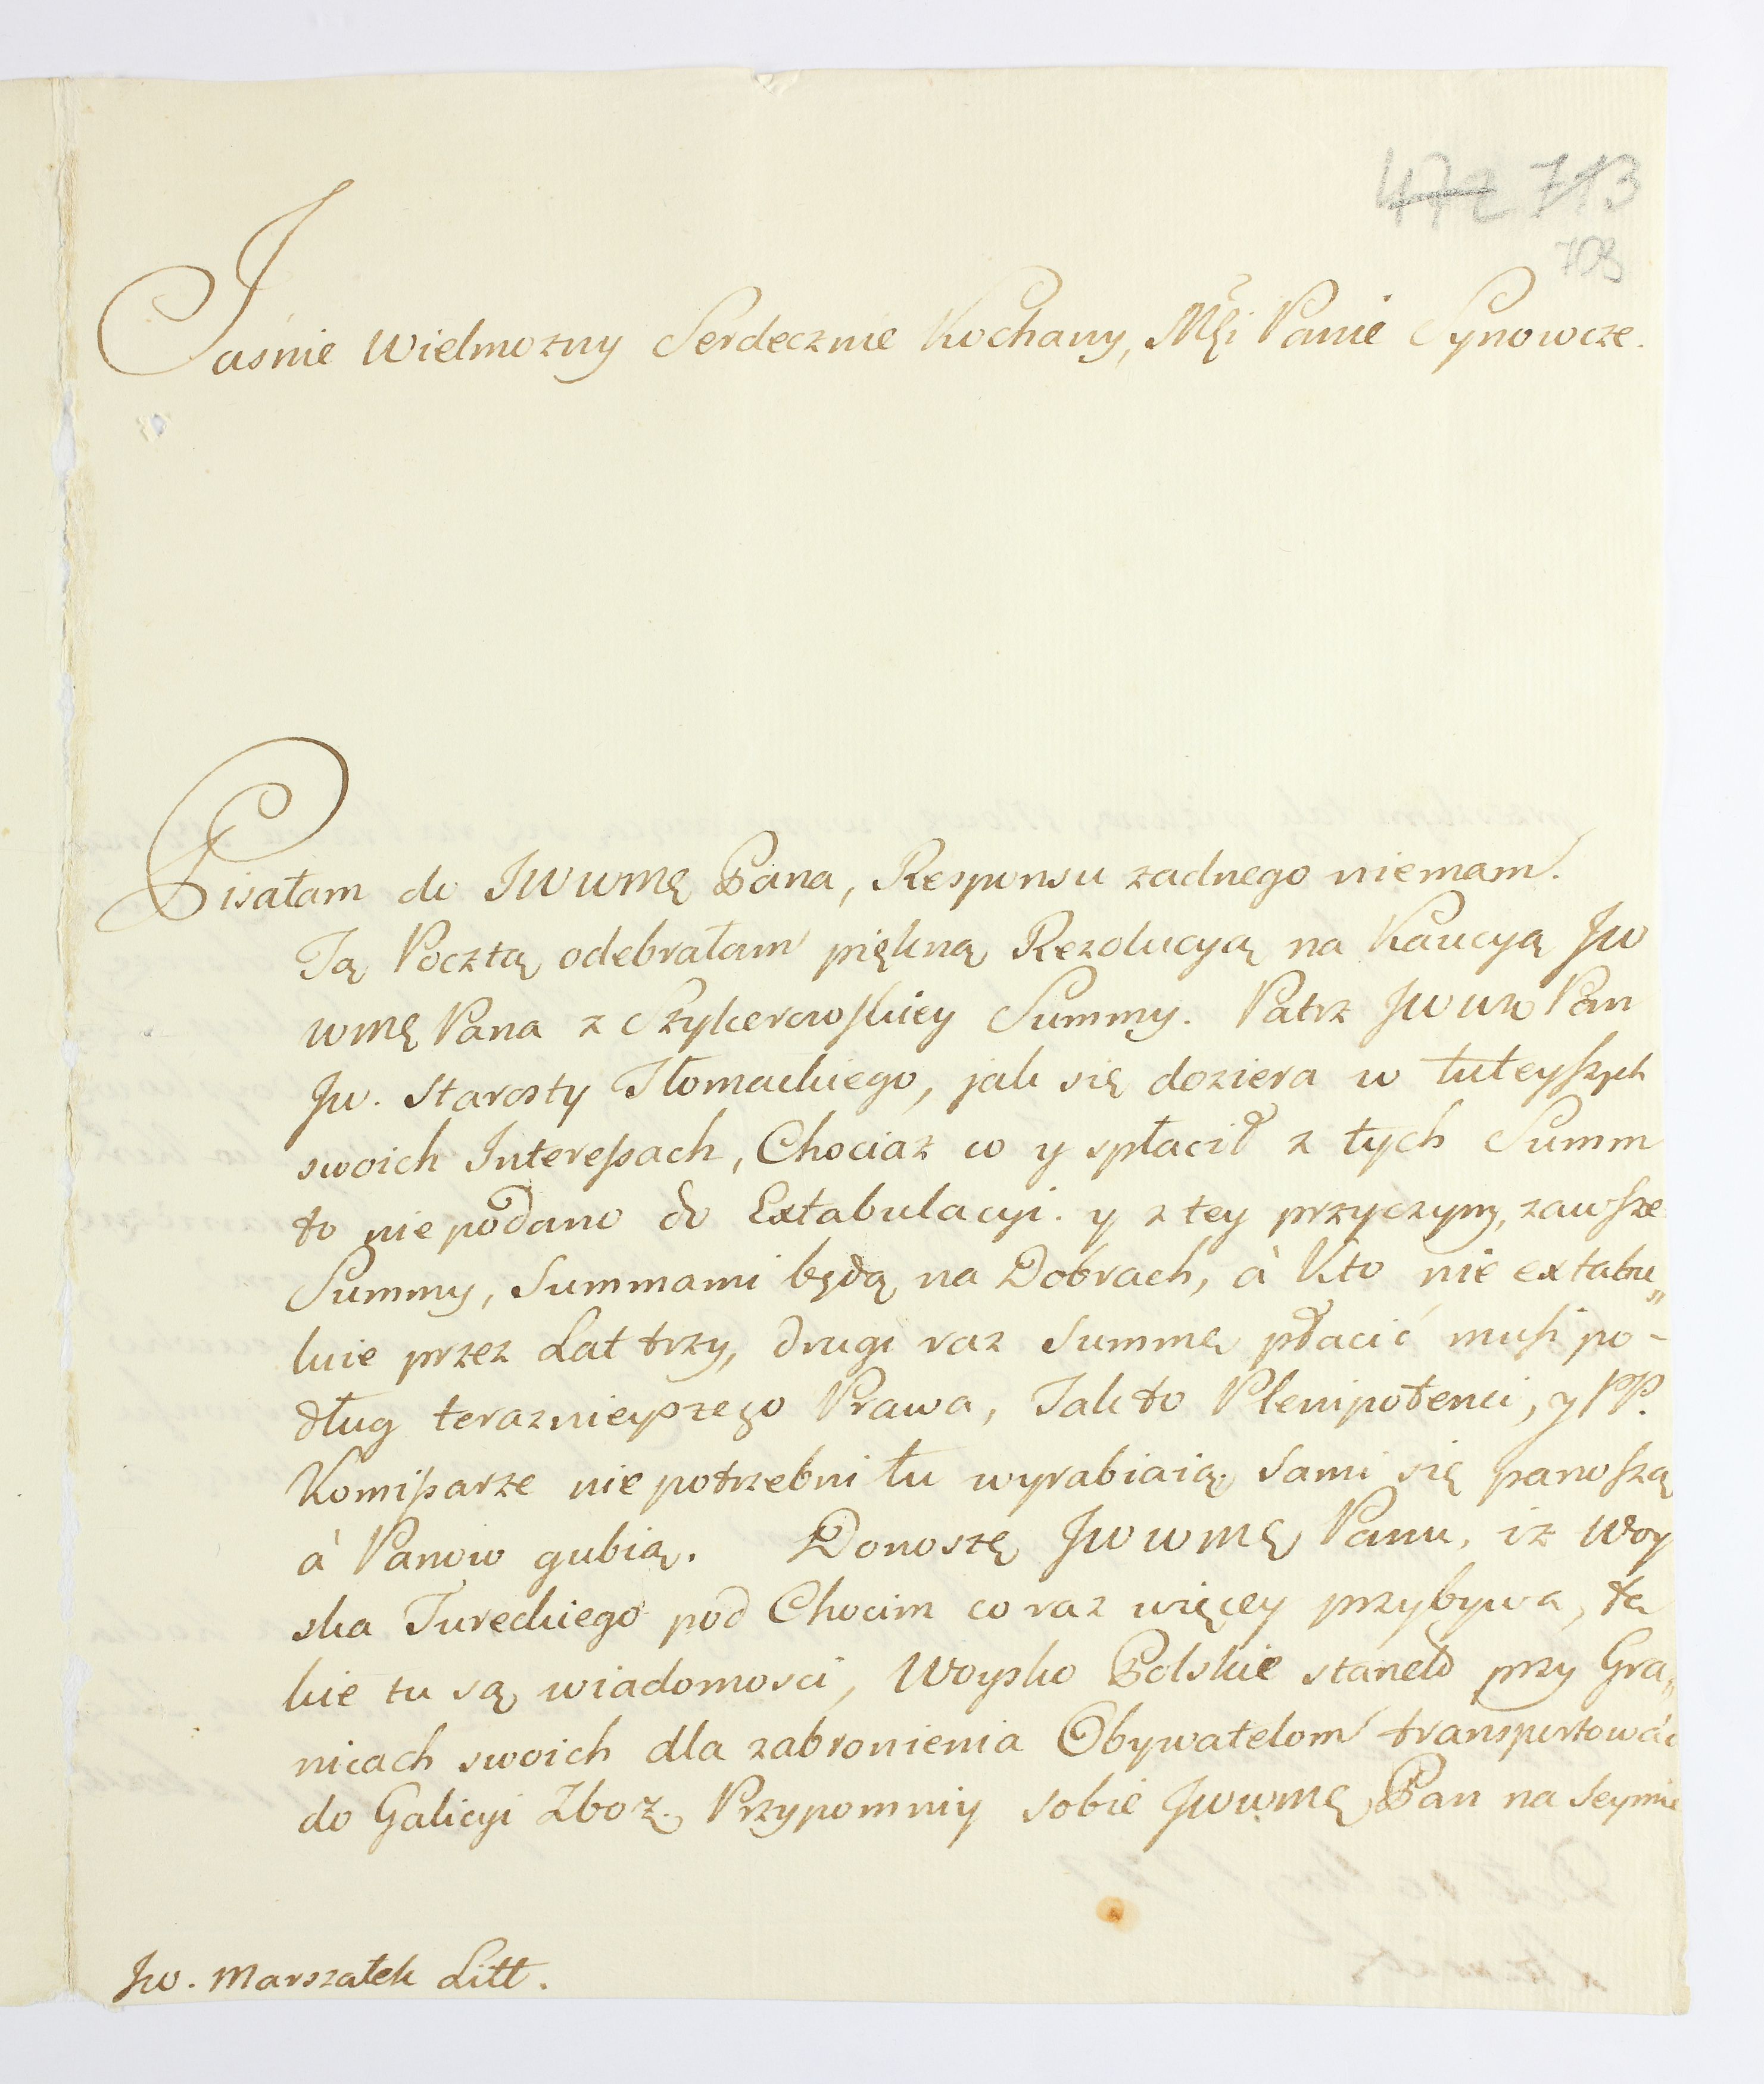 472 713
703
Jaśnie Wielmozny Serdecznie Kochany, Mći Panie Synowcze.
Pisałam do JWWMę Pana, Responsu zadnego niemam.
Tą Pocztą odebrałam piękną Rezolucyą na Kaucyą Jw
WMę Pana z Szykerowskiey Summy. Patrz JWWM Pan
Jw. Starosty Tłomackiego, jak się doziera w tuteyszych
swoich Interessach, Chociaz co y spłacił z tych Summ
to nie podano do Extabulacyi. y z tey przyczyny, zawsze
Summy, Summami będą na Dobrach, à Kto nie extabu„
luie przez Lat trzy, drugi raz Summę płacić musi po-
dług teraznieyszego Prawa, Tak to Plenipotenci, y PP.
Komissarze nie potrzebni tu wyrabiaią, sami się panoszą
à Panow gubią. Donoszę JWWMę Panu, iz Woy
ska Tureckiego pod Chocim co raz więcey przybywa, ta
kie tu są wiadomosci, Woysko Polskie staneło przy Gra„
nicach swoich dla zabronienia Obywatelom transportować
do Galicyi Zboz. Przypomniy sobie JWWMę Pan na Seymie
Jw. Marszałek Litt.